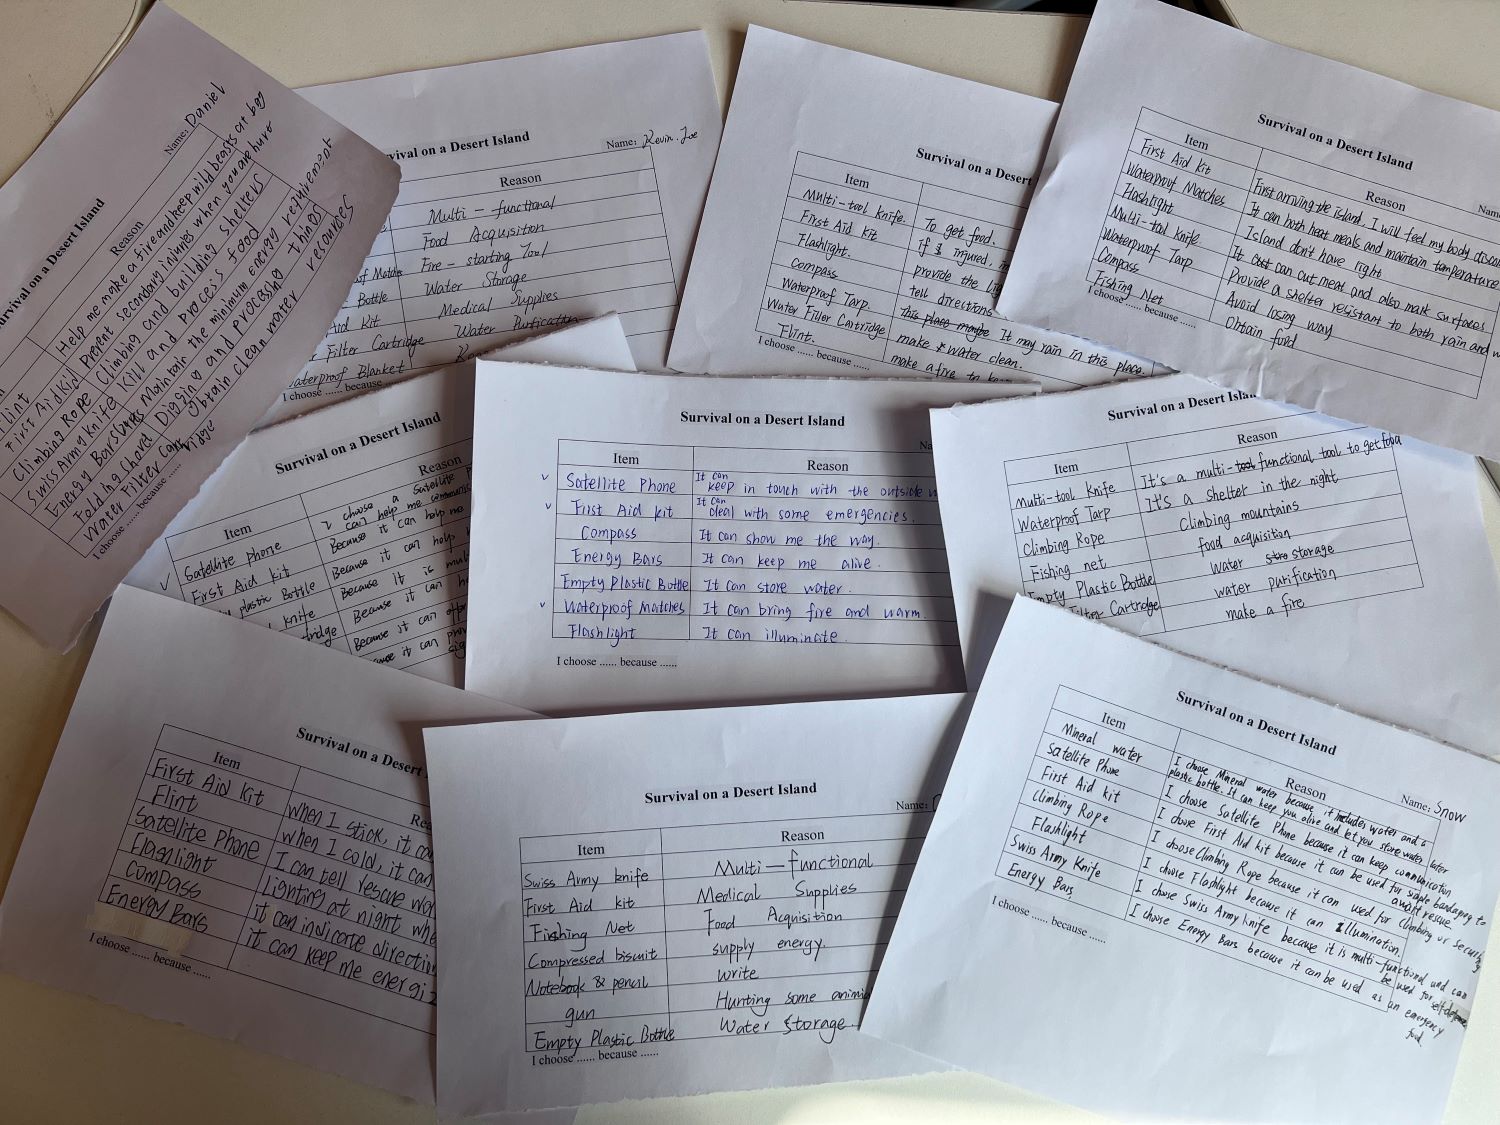 Survival on a Desert Island
Name: Daniel
Reason
Flint Help me make a fire and keep wild beasts at bay
First Aid Kid Prevent secondary injuries when you are hurt
Climbing Rope Climbing and building shelters
Swiss Army Knife Kill and process food
Energy Bars Maintain the minimum energy requirement
Folding Shovel Digging and processing things
Water Filter Cartridge Obtain clean water resources
I choose ...... because ......
Survival on a Desert Island
Name: Kevin.Joe
Reason
Multi - functional
Food Acquisition
Fire - starting Tool
Bottle Water Storage
Aid Kit Medical Supplies
Filter Cartridge Water Purification
Waterproof Blanket
I choose ...... because ......
Survival on a Desert
Item
Multi-tool Knife. To get food.
First Aid Kit If I injured.
Flashlight. provide the
Compass tell directions
Waterproof Tarp. this place maybe It may rain in this place.
Water Filter Cartridge make water clean.
Flint. make a fire to
I choose ...... because ......
Survival on a Desert Island
Item Reason
First Aid Kit First arriving the island, I will feel my body
Waterproof Matches It can both heat meals and maintain temperature
Flashlight Island don't have light
Multi-tool Knife It can cut meat and also mark surfaces
Waterproof Tarp Provide a shelter resistant to both rain and
Compass Avoid losing way
Fishing Net Obtain food
I choose ...... because ......
Survival on a Desert Island
Item Reason
Satellite Phone I choose a Satellite
can help me
First Aid kit Because it can help me
plastic Bottle Because it can help
knife Because it is
Because it can
Because it can
it can
Survival on a Desert Island
Item Reason
Satellite Phone It can keep in touch with the outside
First Aid kit It can deal with some emergencies.
Compass It can show me the way.
Energy Bars It can keep me alive.
Empty Plastic Bottle It can store water.
Waterproof Matches It can bring fire and warm.
Flashlight It can illuminate.
I choose ...... because ......
Survival on a Desert
Item Reason
Multi-tool Knife It's a multi-tool functional tool to get food
Waterproof Tarp It's a shelter in the night
Climbing Rope Climbing mountains
Fishing net food acquisition
Empty Plastic Bottle water storage
Filter Cartridge water purification
make a fire
Survival on a Desert
Item
First Aid Kit When I stick, it can
Flint When I cold, it can
Satellite Phone I can tell rescue
Flashlight Lighting at night
Compass it can indicate direction
Energy Bars it can keep me
I choose ...... because ......
Survival on a Desert Island
Name:
Item Reason
Swiss Army knife Multi - functional
First Aid kit Medical Supplies
Fishing Net Food Acquisition
Compressed biscuit supply energy.
Notebook & pencil write
gun Hunting some
Empty Plastic Bottle Water Storage.
I choose ...... because ......
Survival on a Desert Island
Name: Snow
Item Reason
Mineral water I choose Mineral water because it includes water and a
plastic bottle. It can keep you alive and let you store water later
Satellite Phone I choose Satellite Phone because it can keep communication
await rescue.
First Aid kit I choose First Aid kit because it can be used for simple bandaging
Climbing Rope I choose Climbing Rope because it can used for climbing or security
Flashlight I choose Flashlight because it can illumination.
Swiss Army Knife I choose Swiss Army knife because it is multi-functional and can
be used for self defense
Energy Bars I choose Energy Bars because it can be used as an emergency
food.
I choose ...... because ......